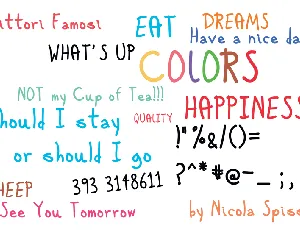 attori Famosi
EAT
DREAMS
Have a nice da
WHAT'S UP
COLORS
NOT my Cup of Tea!!!
HAPPINES
hould I stay
QUALITY
!"%&/()=
or should I go
?^*#@-_;,
HEEP
393 3148611
See You Tomorrow
by Nicola Spiss